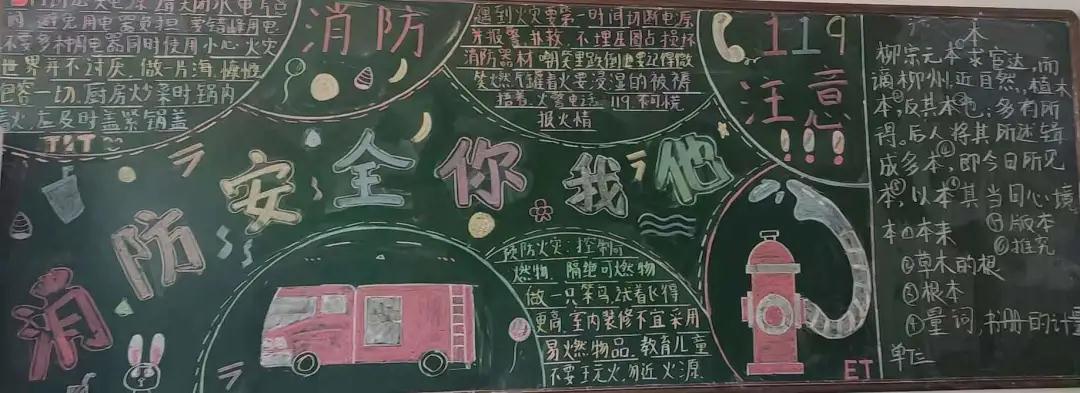 内，避免用电器负担，要错峰用电
不要多种用电器同时使用小心火灾
世界并不讨厌，做一片海，慷慨
包容一切，厨房炒菜时锅内
着火，左及时盖紧锅盖
消防
遇到火灾要第一时间切断电源
并报警、扑救，不埋压圈占损坏
消防器材
突然
火要浸湿的被褥
捂着，火警电话：119不可慌
报火情
119
注意
!!!
消防安全你我他
预防火灾：控制可
燃物，隔绝可燃物
做一只笨鸟，试着飞得
更高，室内装修不宜采用
易燃物品，教育儿童
不要玩火，勿近火源
ET
本
柳宗元本求官达，而
谪柳州，近自然，植木
本，反其本也；多有所
得。后人将其所述辑
成多本，即今日所见
本，以本其当日心境
本①本来 ⑤版本
②草木的根 ⑥推究
③根本
④量词，书册的计量
单位